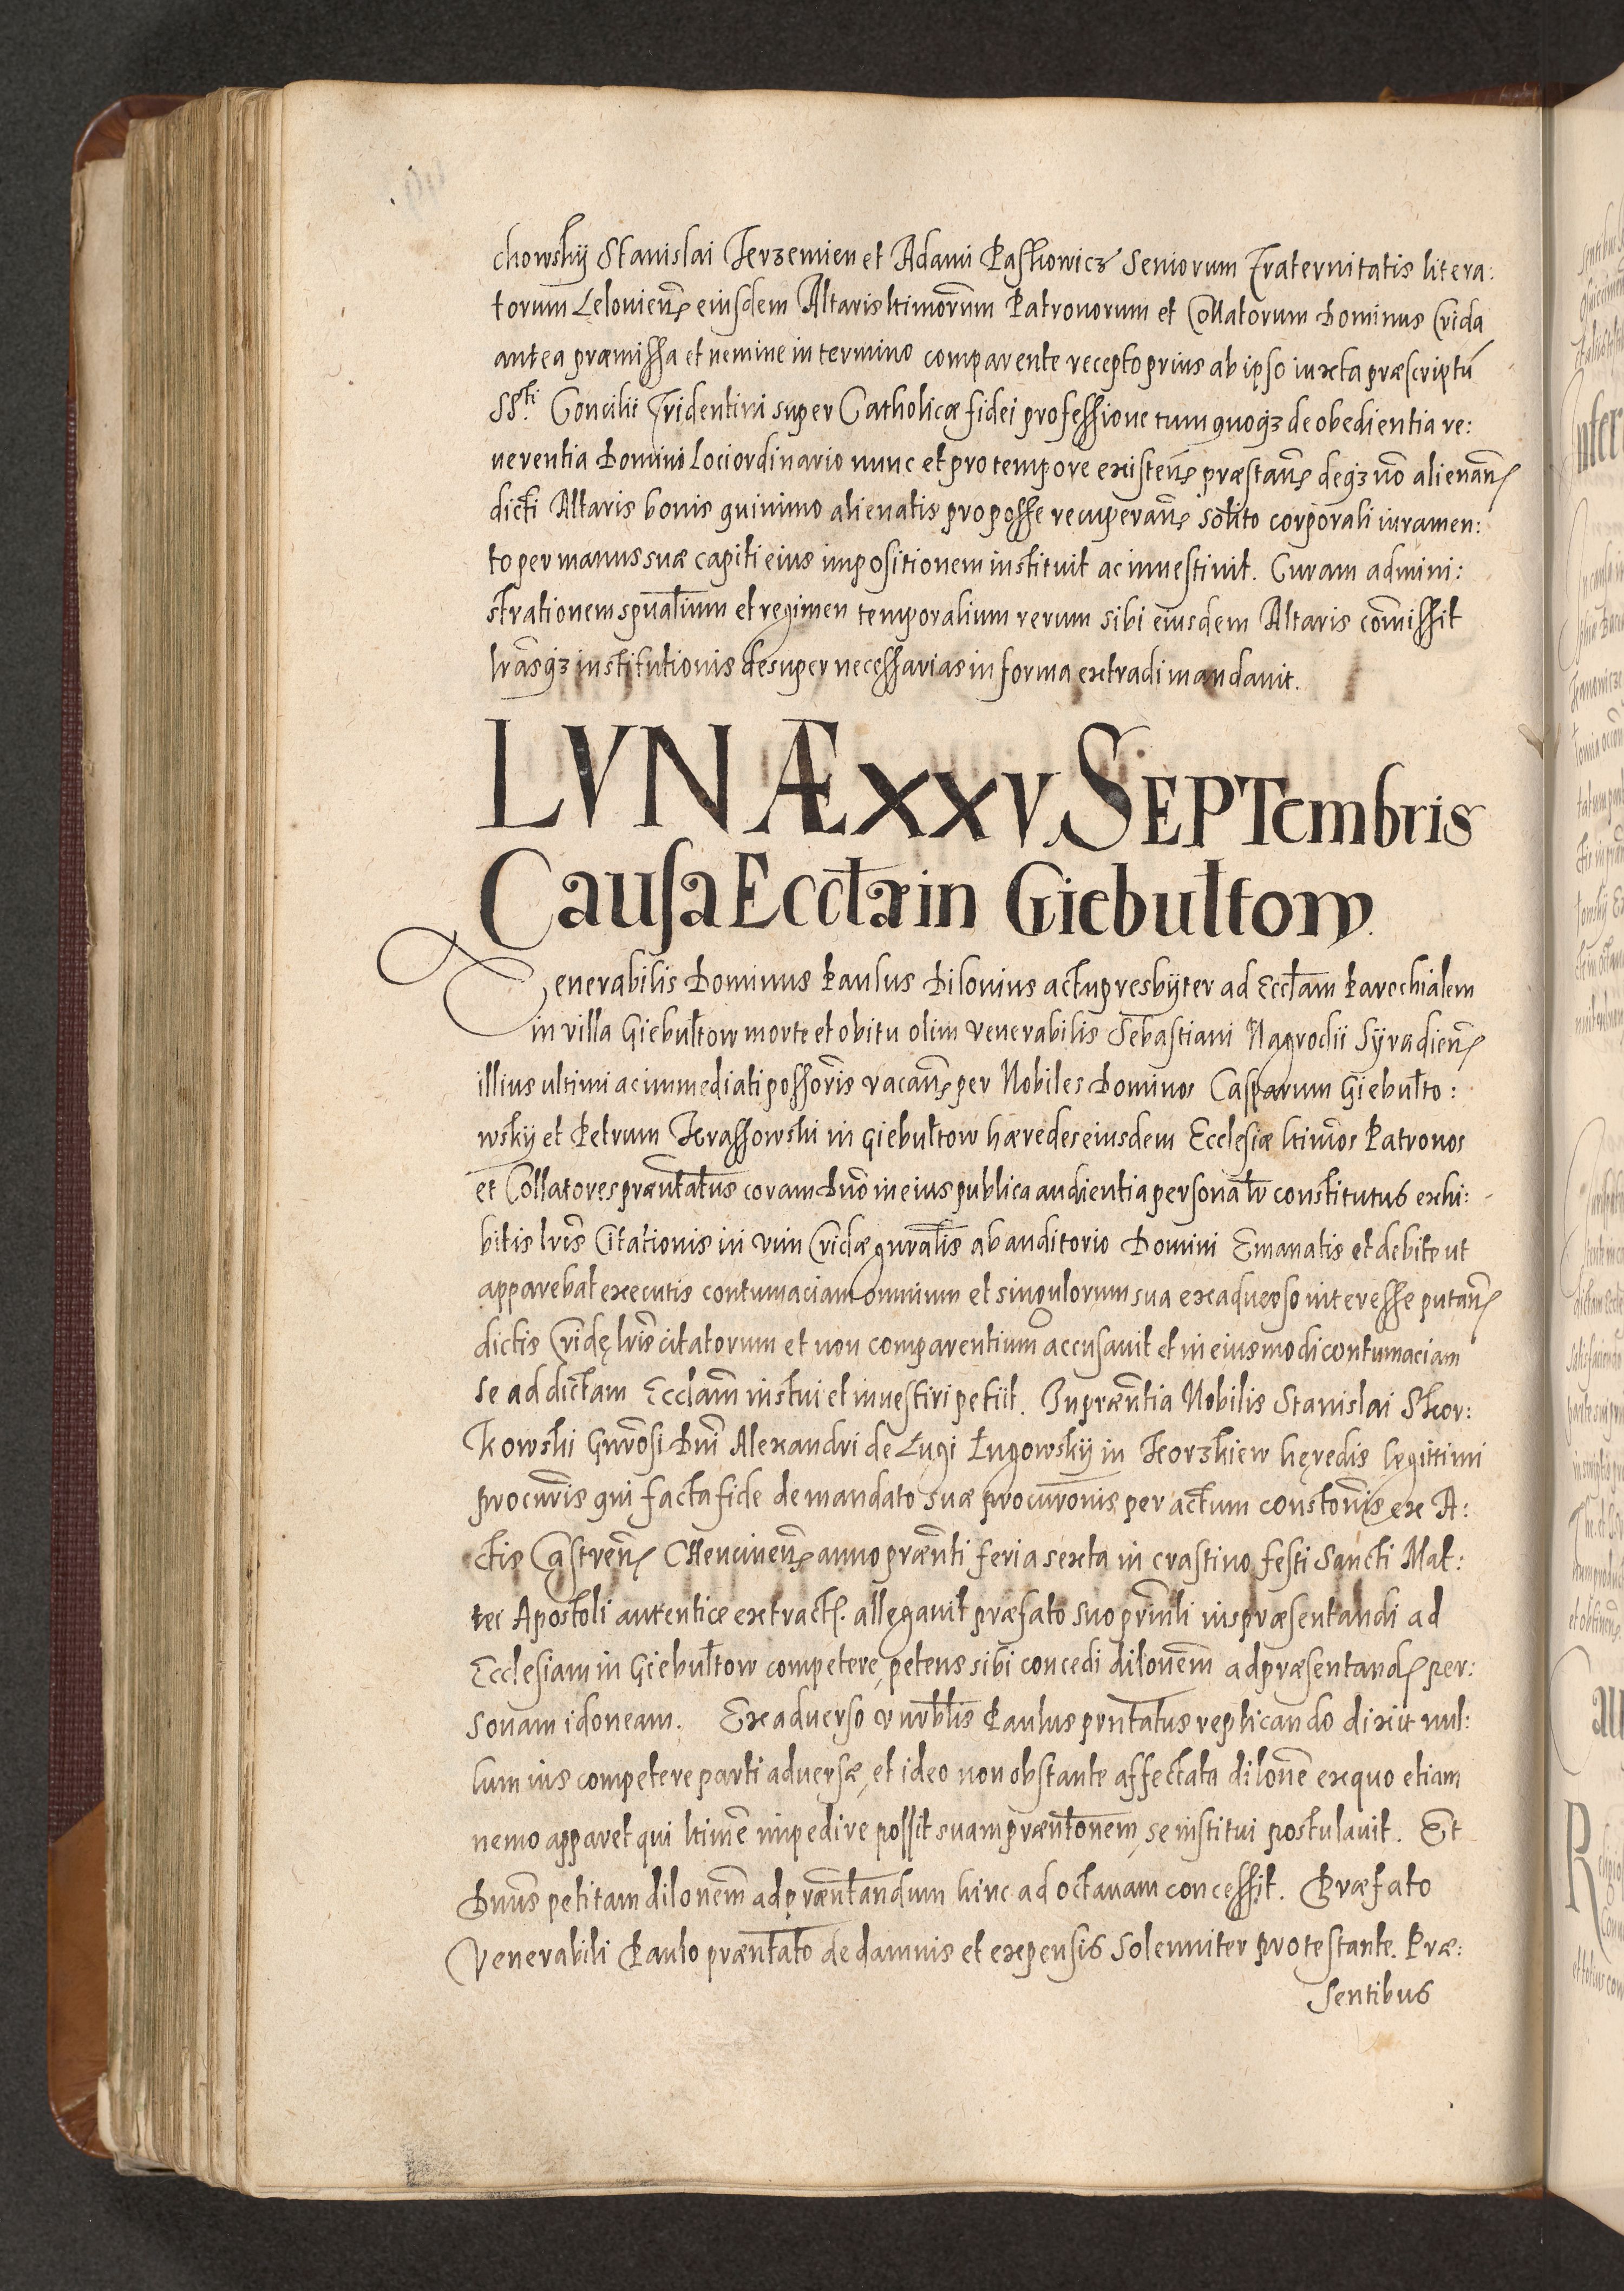 chowsky Stanislai Kerzemien et Adami Paszkowicz Seniorum Fraternitatis litera:
torum Leloviens eiusdem Altaris ltimorum Patronorum et Collatorum Dominus Crida
antea præmissa et nemine in termino comparente recepto prius ab ipso iuxta præscriptū
SSti Concilii Tridentini super Catholicæ fidei professione tum quoqз de obedientia re:
verentia Domino Loci ordinario nunc et pro tempore existens præstans deqз nō alienans
dicti Altaris bonis quinimo alienatis pro posse recuperans solito corporali iuramen:
to per manus suæ capiti eius impositionem instituit ac investivit. Curam admini:
strationem spualium et regimen temporalium rerum sibi eiusdem Altaris cōmissit
lrasqз institutionis desuper necessarias in forma extradi mandavit.
LVNÆ XXV SEPTembris
Causa Ecclæ in Giebułtow.
Venerabilis Dominus Paulus Dilovius actu presbyter ad Ecclam Parochialem
in villa Giebułtow morte et obitu olim venerabilis Sebastiani Nagrodii Syradiens
illius ultimi ac immediati possoris vacans per Nobiles Dominos Casparum Giebułto:
wsky et Petrum Krassowski in Giebułtow hæredes eiusdem Ecclesiæ ltimos Patronos
et Collatores præntatus coram Dno in eius publica audientia personalr constitutus exhi:
bitis lris Citationis in vim Cridæ gnralis ab auditorio Domini Emanatis et debite ut
apparebat executis contumaciam omnium et singulorum sua ex adverso interesse putans
dictis Cridę lris citatorum et non comparentium accusavit et in eiusmodi contumaciam
se ad dictam Ecclam instui et investiri petiit. In præntia Nobilis Stanislai Skor:
kowski Gnrosi Dni Alexandri de Lugi Lugowsky in Korzkiew hęredis legittimi
procuris qui facta fide de mandato suæ procuronis per actum constonis ex A:
ctis Castrens Chencinens anno prænti feria sexta in crastino festi Sancti Mat:
tei Apostoli autenticæ extract. allegavit præfato suo prinli ius præsentandi ad
Ecclesiam in Giebułtow competere, petens sibi concedi dilonem ad præsentand per:
sonam idoneam. Ex adverso vnrblis Paulus prntatus replicando dixit nul:
lum ius competere parti adversæ, et ideo non obstante affectata dilone ex quo etiam
nemo apparet qui ltime impedire possit suam præntonem, se institui postulavit. Et
Dnus petitam dilonem ad præntandum hinc ad octavam concessit. Præfato
Venerabili Paulo præntato de damnis et expensis solenniter protestante. Præ:
sentibus